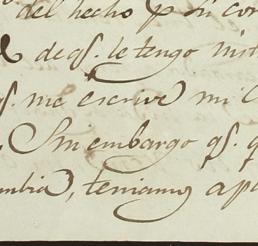 del hecho p. su con
de qs. le tengo inst
qs. me escrive mi C
Sin embargo qs. q
mbia, teniamos apa